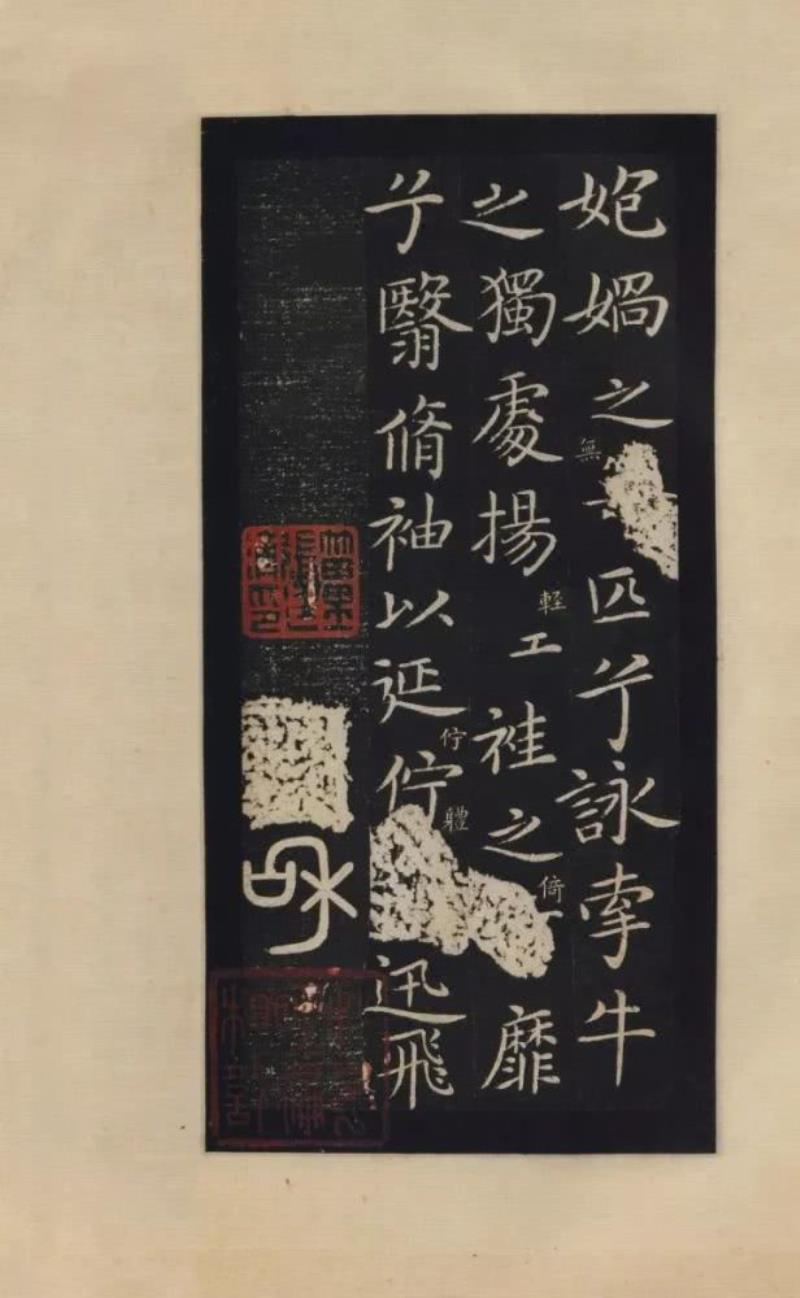 匏媧之無匹兮詠牽牛
之獨處揚軽袿之倚靡
兮翳脩袖以延佇佇體迅飛